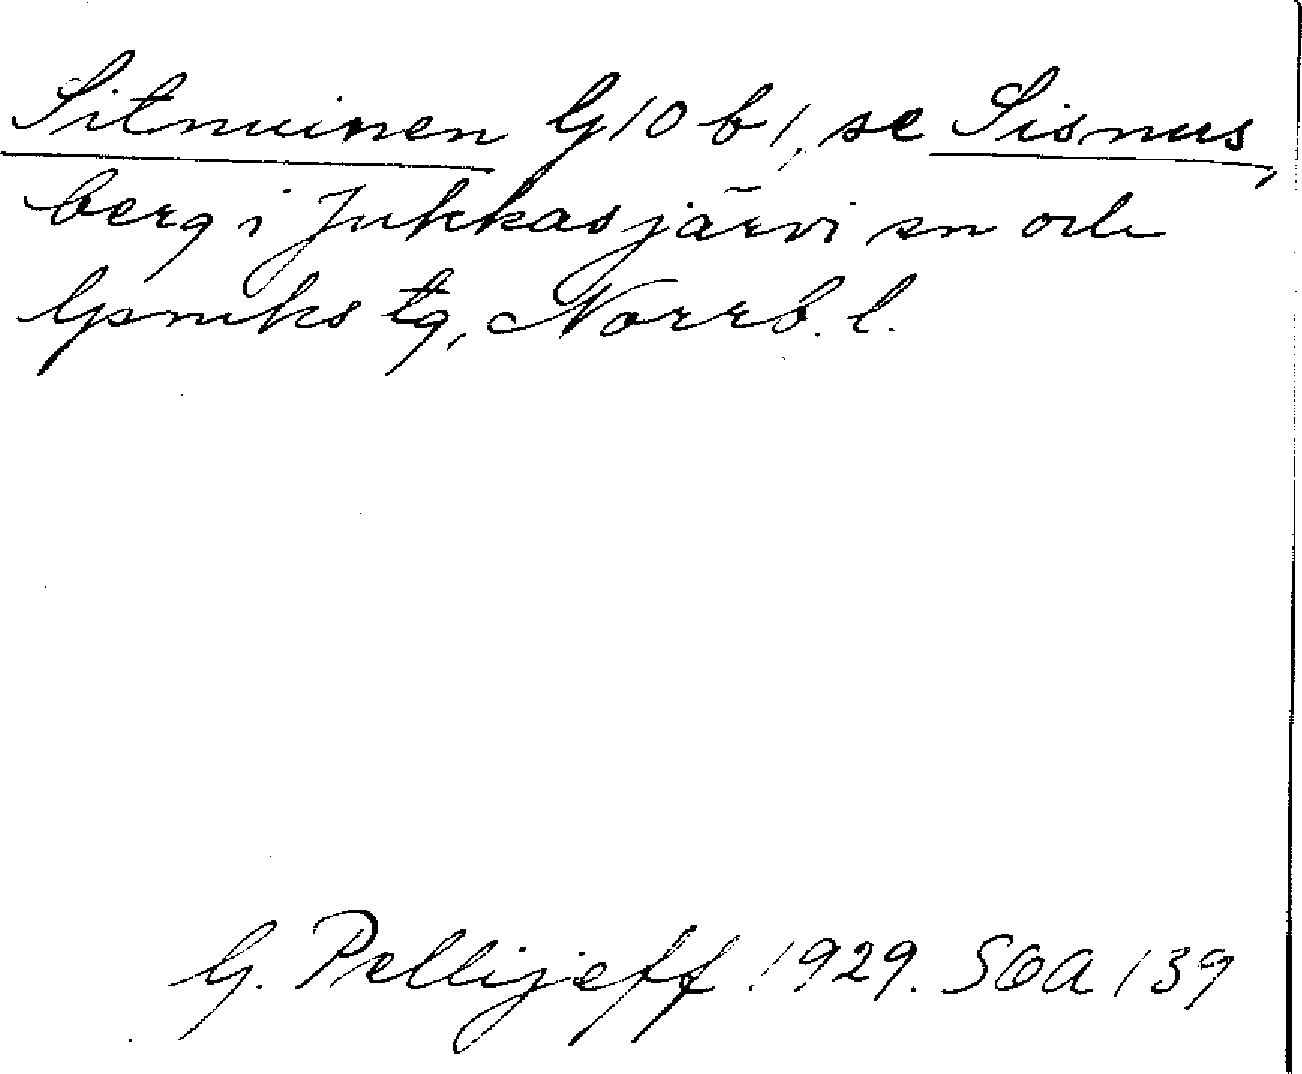 Sitnuinen G10 b1, se Sisnus,
berg i Jukkasjärvi sn och
Gsniks tg, Norrb. l.
G. Pellijeff 1929. SOA 139